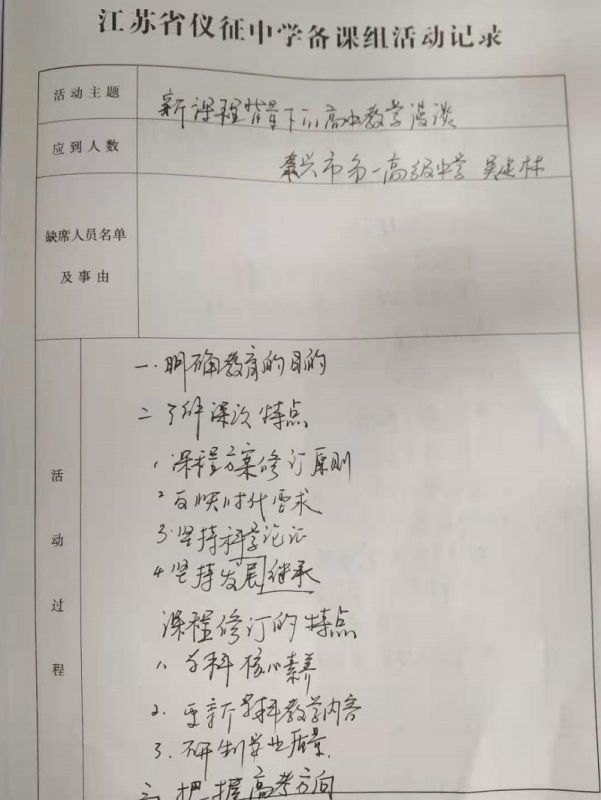 江苏省仪征中学备课组活动记录
活动主题
新课程背景下的高中教学漫谈
应到人数
泰兴市第一高级中学 吴建林
缺席人员名单
及事由
活动过程
一.明确教育的目的
二 了解课次特点
1.课程方案修订原则
2 反映时代需求
3.坚持科学论证
4.坚持发展继承
课程修订的特点
1.学科核心素养
2.更新学科教学内容
3.研制学业质量
三 把握高考方向